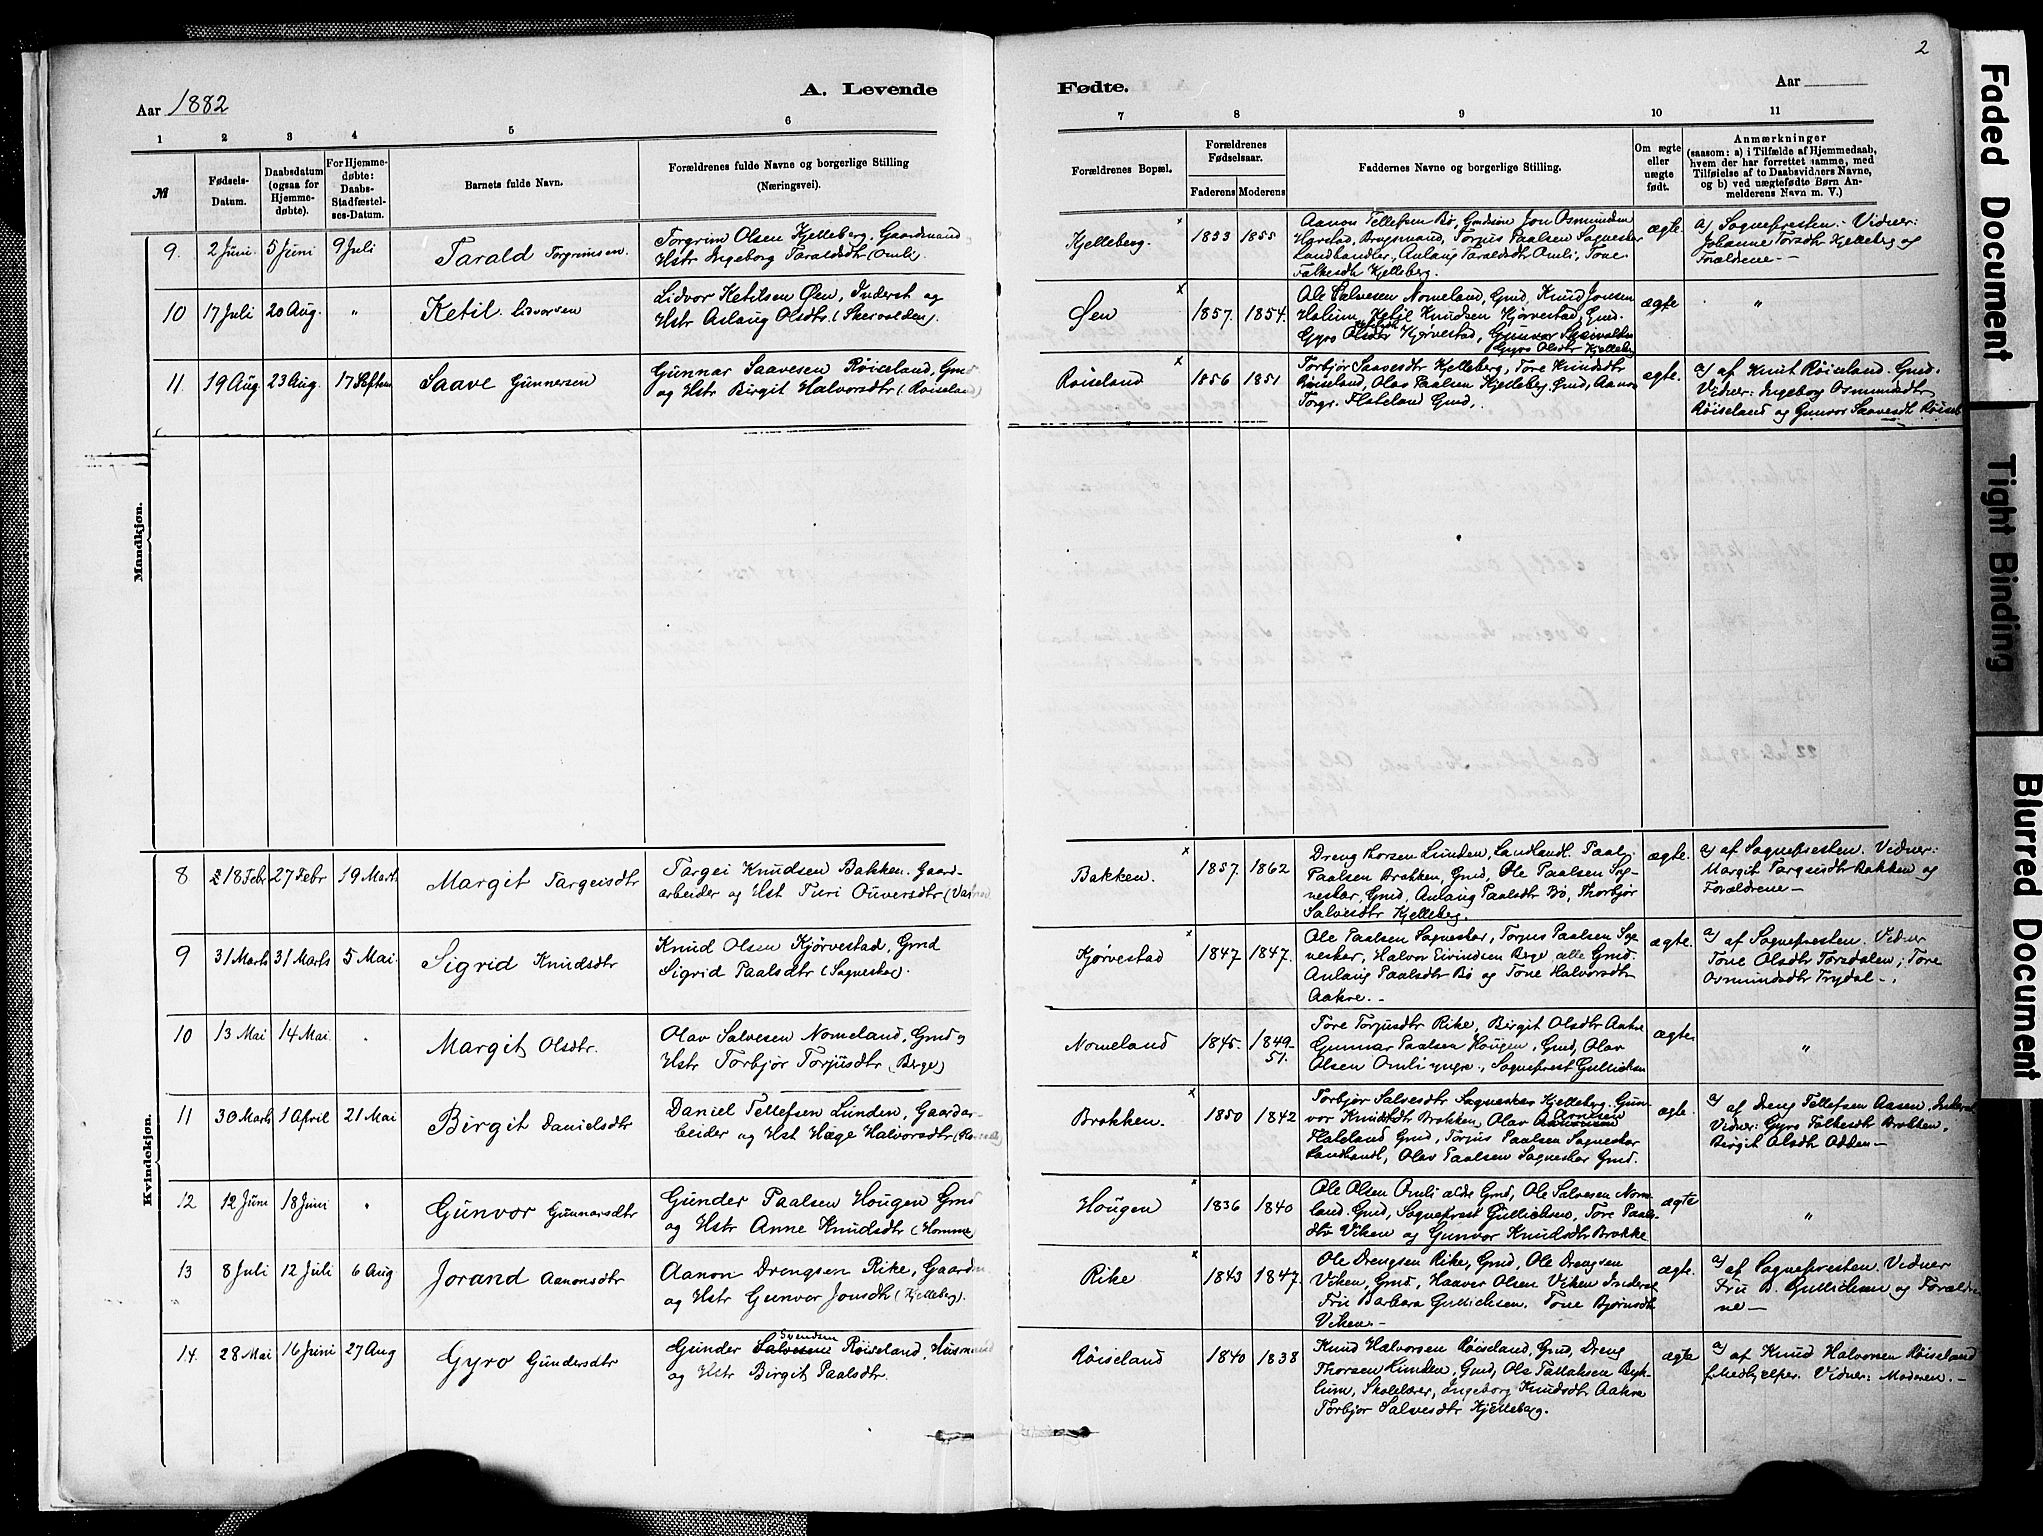 2
Aar 1882
A. Levende
Fødte.
Aar
1 2 3 4 5 6 7 8 9 10 11
№
Fødsels-
Datum.
Daabsdatum
(ogsaa for
Hjemme-
døbte).
For Hjemme-
døbte:
Daabs-
Stadfæstel-
ses-Datum.
Barnets fulde Navn.
Forældrenes fulde Navne og borgerlige Stilling
(Næringsvei).
Forældrenes Bopæl.
Forældrenes
Fødselsaar.
Faderens Moderens
Faddernes Navne og borgerlige Stilling.
Om ægte
eller
uægte
født.
Anmærkninger
(saasom: a) i Tilfælde af Hjemmedaab,
hvem der har forrettet samme, med
Tilføielse af to Daabsvidners Navne,
og b) ved uægtefødte Børn An-
melderens Navn m. V.)
Mandkjøn.
9. 2 Juni 5 Juni 9 Juli
Tarald Torgrimsen.
Torgrim Olsen Kjelleberg. Gaardmand
Hstr Ingeborg Taraldsdtr (Omli)
Kjelleberg. x
1853 1855
Aanon Tellefsen Bø, Gmdsøn Jon Osmundsen
Harstad, Brugsmand, Torjus Paalsen Sagneskar
Landhandler, Aslaug Taraldsdtr Omli, Tone
Falkesdtr Kjelleberg.
ægte.
a) Sognepresten. Vidner:
Johanne Torsdtr Kjelleberg og
Forældrene -
10 17 Juli 20 Aug. "
Ketil Lidvorsen
Lidvor Ketilsen Øen, Inderst og
Hstr Aslaug Olsdtr. (Skervalden).
Øen x
1857. 1854.
Ole Salvesen Nomeland, Gmd, Knud Jonsen
Holum, Ketil Knudsen Hjørvestad, Gmd.
Gyro Olsdtr Hjørvestad, Gunvor Skeivalden
Gyro Olsdtr Kjelleberg
ægte
"
11. 19 Aug 23 Aug. 17 Septem
Saave Gunnersen
Gunnar Saavesen Røiseland, Gmd
og Hstr Birgit Halvorsdtr (Røiseland)
Røiseland x
1856 1851
Torbjør Saavesdtr Kjelleberg, Tore Knudsdtr
Røiseland, Olav Paalsen Kjelleberg. Gmd, Aanon
Torgr. Flateland Gmd,.
ægte.
a) af Knut Røiseland. Gmd.
Vidner: Ingeborg Osmundsdtr
Røiseland og Gunvor Saavesdt Røisel
Kvindekjøn.
8 18 Febr 27 Febr 19 Marts
Margit Targeisdtr
Targei Knudsen Bakken. Gaard-
arbeider og Hst Turi Ouversdtr
Bakken. x
1857. 1862
Dreng Thorsen Lunden, Landhandl. Paal
Paalsen Brokken, Gmd, Ole Paalsen Sag-
neskar, Gmd, Aslaug Paalsdtr Bø, Thorbjør
Salvesdtr Kjelleberg.
ægte.
a) af Sognepresten. Vidner:
Margit Targeisdtr Bakken og
Forældrene -
9 31 Marts 31 Marts 5 Mai.
Sigrid Knudsdtr
Knud Olsen Kjørvestad, Gmd
Sigrid Paalsdtr (Sagneskar).
Kjørvestad x
1847 1847.
Ole Paalsen Sagneskar, Torjus Paalsen Sag-
neskar, Halvor Eivindsen Berge alle Gmd.
Aslaug Paalsdtr Bø og Tone Halvorsdtr
Aakre. -
ægte.
a) af Sognepresten. Vidner
Tone Olsdtr Torsdalen, Tone
Osmundsdtr Trydal -.
10 13 Mai 14 Mai.
Margit Olsdtr.
Olav Salvesen Nomeland, Gmd og
Hstr Torbjør Torjusdtr (Berge)
Nomeland
1845. 1849-
51.
Tore Torjusdtr Rike, Birgit Olsdtr Aakre
Gunnar Paalsen Hougen, Gmd, Olav
Olsen Omli yngre., Sogneprest Gullichsen
ægte.
"
11 30 Marts 1 April 21 Mai
Birgit Danielsdtr
Daniel Tellefsen Lunden, Gaardar-
beider og Hst Hæge Halvorsdtr
Brokken. x
1850 1842
Torbjør Salvesdtr Sagneskar Kjelleberg, Gun-
vor Knudsdtr Brokken, Olav Aanonsen
Flateland Gmd, Torjus Paalsen Sagneskar
Landhandl, Olav Paalsen Sagneskar Gmd.
ægte.
a) af Dreng Tellefsen Aasen, Inderst
Vidner: Gyro Falkesdtr Brokken,
Birgit Olsdtr Odden -
12 12 Juni 18 Juni
Gunvor Gunnarsdtr
Gunder Paalsen Hougen Gmd
og Hstr Anne Knudsdtr (Homme)
Hougen x
1836 1840
Ole Olsen Omli ældre Gmd, Ole Salvesen Nome-
land. Gmd, Sogneprest Gullichsen, Tore Paals-
dtr Viken og Gunvor Knudsdtr Brokke
ægte
"
13 8 Juli 12 Juli 6 Aug
Jorand Aanonsdtr
Aanon Drengsen Rike, Gaardm
og Hstr Gunvor Jonsdtr (Kjelleberg).
Rike x
1843 1847.
Ole Drengsen Rike, Gmd, Ole Drengsen
Viken, Gmd, Haavor Olsen Viken Inderst
Fru Barbara Gullichsen, Tone Bjørnsdtr
Viken. -
ægte.
a) af Sognepresten. Vidner
Fru B. Gullichsen og Forældre
ne -
14. 28 Mai 16 Juni 27 Aug
Gyro Gundersdtr
Svendsen
Gunder Salvesen Røiseland, Husmand
og Hstr Birgit Paalsdtr.
Røiseland
1840 1838
Knud Halvorsen Røiseland, Gmd, Dreng
Thorsen Lunden, Gmd, Ole Tallaksen Byk-
lum, Skolelærer, Ingeborg Knudsdtr Aakre
Torbjør Salvesdtr Kjelleberg.
ægte
a) af Knud Halvorsen Røiseland
f. Medhjælper. Vidner: Moderen. -
Faded Document
Tight Binding
Blurred Document